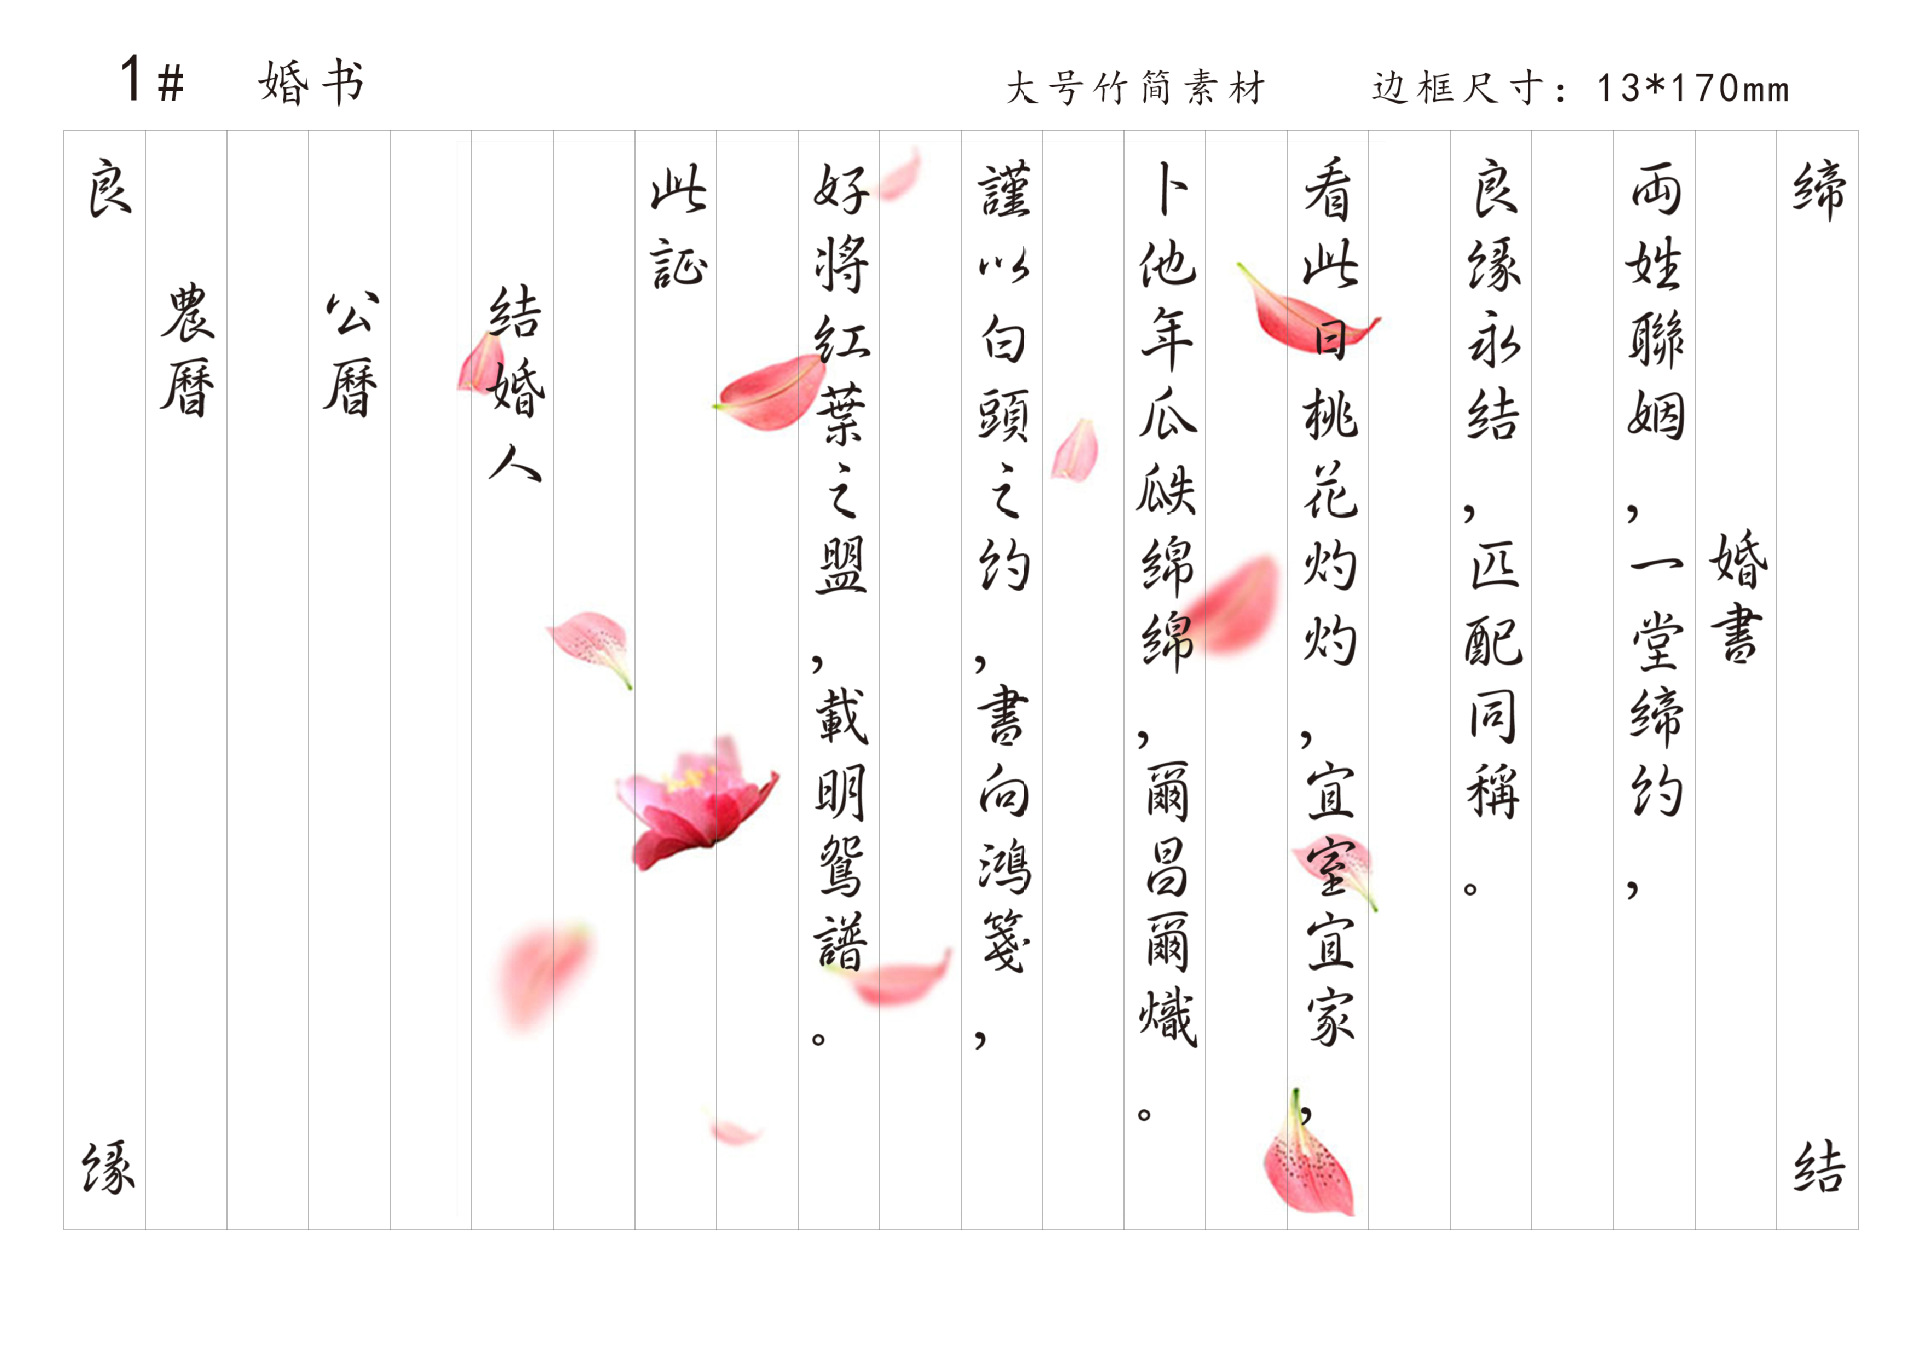 1# 婚书 大号竹简素材 边框尺寸：13*170mm
缔结
婚書
両姓聯姻，一堂缔约，
良缘永结，匹配同稱。
看此日桃花灼灼，宜室宜家，
卜他年瓜瓞绵绵，爾昌爾熾。
謹以白頭之约，書向鴻箋，
好将红葉之盟，載明鴛譜。
此証
结婚人
公曆
農曆
良缘